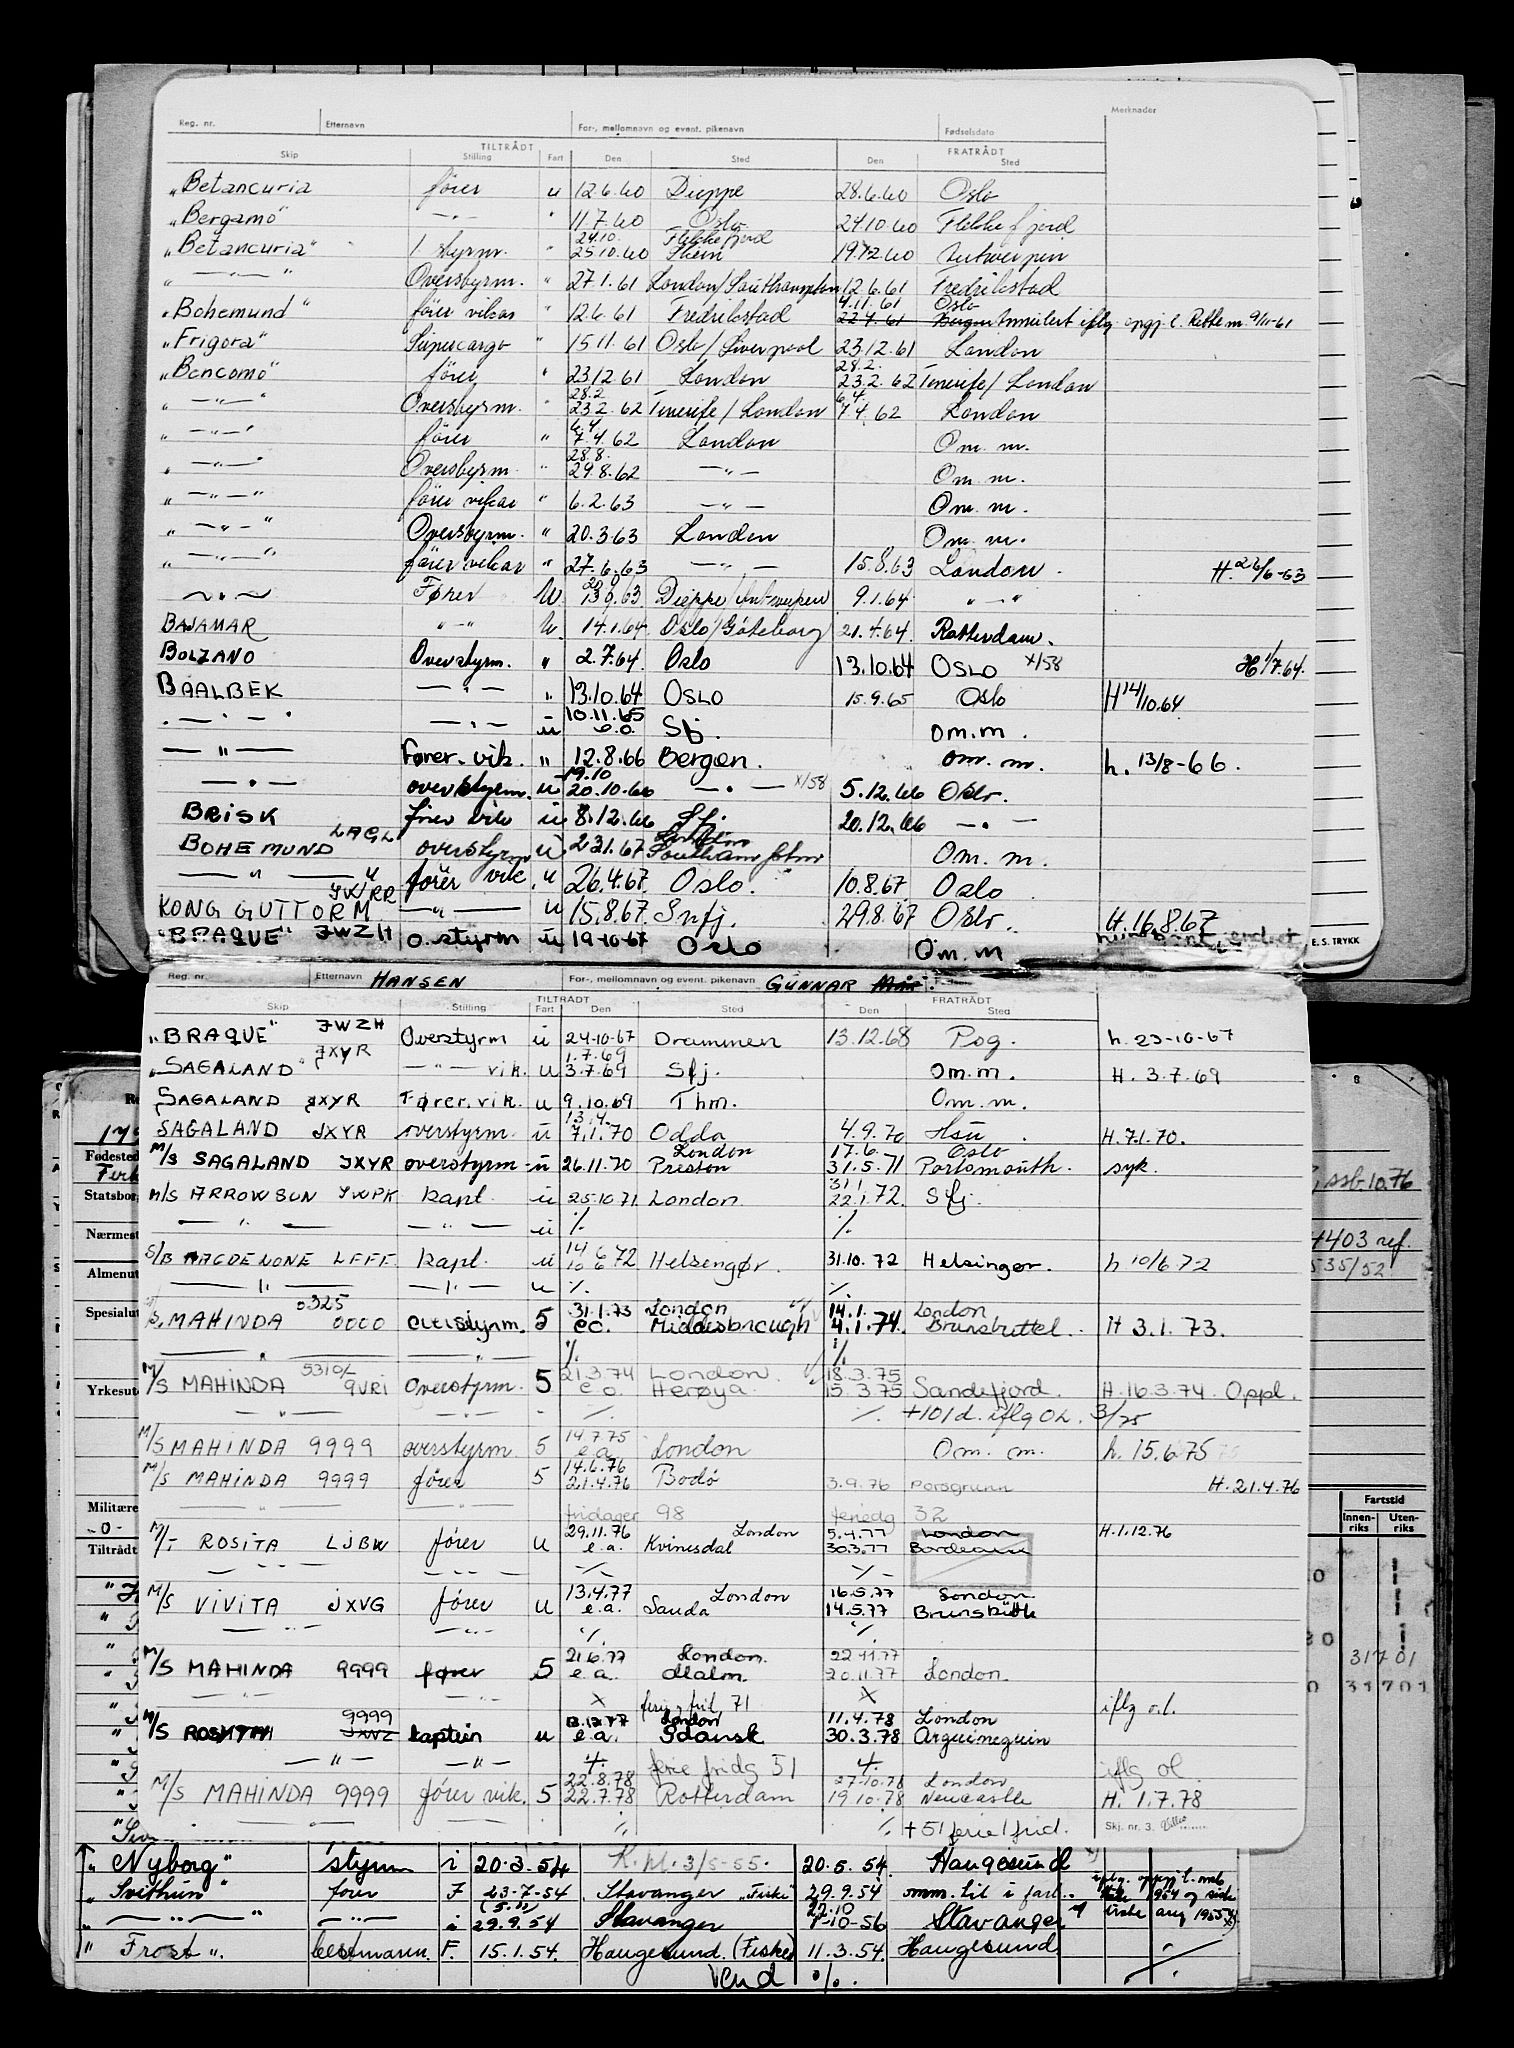 Reg. nr. Etternavn For-, mellomnavn og event. pikenavn Fødselsdato Merknader
TILTRÅDT FRATRÅDT
Skip Stilling Fart Den Sted Den Sted
"Betancuria fører u 12.6.60 Dieppe 28.6.60 Oslo
"Bergamo" —"— " 11.7.60 Oslo 24.10.60 Flekkefjord
24.10. Flekkefjord
"Betancuria" 1 styrm. " 25.10.60 Skien 19.12.60 Antwerpen
" —"— " Overstyrm. " 27.1.61 London/Southampton 12.6.61 Fredrikstad
4.11.61 Oslo
"Bohemund" fører vikar " 12.6.61 Fredrikstad 22.4.61 Bergen Annulert iflg. oppgj. l. Rettem. 9/11-61
"Frigora" Supercargo " 15.11.61 Oslo/Liverpool 23.12.61 London
28.2.
"Bencomo" fører " 23.12.61 London 23.2.62 Tenerife/London
28.2 6.4
" —"— " Overstyrm. " 23.2.62 Tenerife/London 7.4.62 London
6.4
" —"— " fører " 7.4.62 London Om. m.
28.8.
" —"— " Overstyrm. " 29.8.62 —"— Om. m.
" —"— " fører vikar " 6.2.63 —"— Om. m.
" —"— " Overstyrm. " 20.3.63 London Om. m.
" —"— " fører vikar " 27.6.63 —"— 15.8.63 London. H. 26/6-63
—"— Fører U. 13.9.63 Dieppe/Antwerpen 9.1.64 " — "
BAJAMAR " — " U. 14.1.64 Oslo/Göteborg 21.4.64. Rotterdam.
BOLZANO Overstyrm. " 2.7.64. Oslo 13.10.64 OSLO x/58 H 1/7.64.
BAALBEK — " — " 13.10.64 OSLO 15.9.65 Oslo H 14/10.64
10.11.65
" — " — " — " — u e.o. Sfj. om.m.
— " — Fører. vik. " 12.8.66 Bergen. om. m. h. 13/8-66.
19.10
— " — overstyrm. u 20.10.66 — " — x/58 5.12.66 Oslo.
BRISK fører vik u 8.12.66 Sfj. 20.12.66 — " —
LAGL London
BOHEMUND overstyrm u 2.31.67 Southampton Om. m.
— " — fører vik. u 26.4.67. Oslo. 10.8.67. Oslo
JXRR
KONG GUTTORM — " — u 15.8.67. Snfj. 29.8.67 Oslo. H. 16.8.67
"BRAQUE" JWZH O.styrm u 19-10-67 Oslo Om. m
E. S. TRYKK
Reg. nr. Etternavn HANSEN For-, mellomnavn og event. pikenavn GUNNAR
TILTRÅDT FRATRÅDT
Skip Stilling Fart Den Sted Den Sted
"BRAQUE" JWZH Overstyrm u 24-10-67 Drammen 13.12.68 Pog. h. 23-10-67
1.7.69
"SAGALAND" JXYR — " — vik. u 3.7.69 Sfj. Om. m. H. 3.7.69
SAGALAND JXYR Fører. vik. u 9.10.69 Thm. Om. m.
13.4.
SAGALAND JXYR overstyrm. u 7.1.70 Odda 4.9.70 Hsu. H. 7.1.70.
London 17.6. Oslo
M/S SAGALAND JXYR overstyrm - u 26.11.70 Preston 31.5.71 Portsmouth. syk.
31/1
M/S ARROW SUN JWPK kapt. u 25.10.71 London 22.1.72. Sfj.
— " — — " — u ./. ./.
14
S/B MAGDELONE LFFF. kapt. u 10.6.72 Helsengør. 31.10.72 Helsingør. h 10/6.72
— " — — " — u ./. ./.
0325 31.1.73 London 14.1. London
M/S. MAHINDA 0000 overstyrm. 5 e.o. Middlesbrough 4.1.74. Brunsbuttel. H 3.1.73.
— " — — " — ./. ./.
5310/L 21.3.74 London. 18.3.75
M/S MAHINDA 9VRI Overstyrm. 5 e.o. Herøya. 15.3.75 Sandefjord. H. 16.3.74. Oppl.
— " — — " — - ./. ./. +101 d. iflg OL. 3/75
14.7.75
M/S MAHINDA 9999 overstyrm. 5 e.a. London Om. m. h. 15.6.75
14.6.76
M/S MAHINDA 9999 fører 5 21.4.76 Bodø 3.9.76 Porsgrunn H. 21.4.76
— " — — " — fridager 98 feriedg 32
29.11.76 London 5.4.77 London
M/T ROSITA LJBW fører u e.a. Kvinesdal 30.3.77 Bordeaux H. 1.12.76
— " — — " — ./. ./.
13.4.77 London 16.5.77 London
M/S VIVITA JXVG fører u e.a. Sauda 14.5.77 Brunsbüttel
— " — — " — ./. ./.
21.6.77 London. 22.11.77
M/S MAHINDA 9999 fører 5 e.a. Malm. 20.11.77 London.
— " — — " — x ferie frid 71 x iflg o.l.
9999 London 11.4.78 London
M/S JXVZ kaptein u e.a. Gdansk 30.3.78 Arguineguin
— " — — " — ./. ferie fridg 51 ./. iflg ol.
22.8.78 27.10.78 London
M/S MAHINDA 9999 fører vik. 5 22.7.78 Rotterdam 19.10.78 Newcastle H. 1.7.78
— " — ./. ./. +51 ferie/frid. Skj. nr. 3.
"Nyborg" styrm i 20.3.54 K. M. 3/5-55. 20.5.54 Haugesund
"Svithun" fører F 23-7-54 Stavanger "Fiske" 29.9.54 omm. til i fart..
(5.11) 22.10
" — " — " — " — i 29.9.54 Stavanger 1-10-56 Stavanger
" Frost ". bestmann. F. 15.1.54. Haugesund. (Fiske) 11.3.54. Haugesund
Vend ./.
Fødested
Statsborg
Nærmest
Almenut
Spesialut
Yrkesut
Militære
-0-
Tiltrådt
, ssb. 10.76
4403 ref.
535/52
Fartstid
Innen-riks Uten-riks
31701
31701